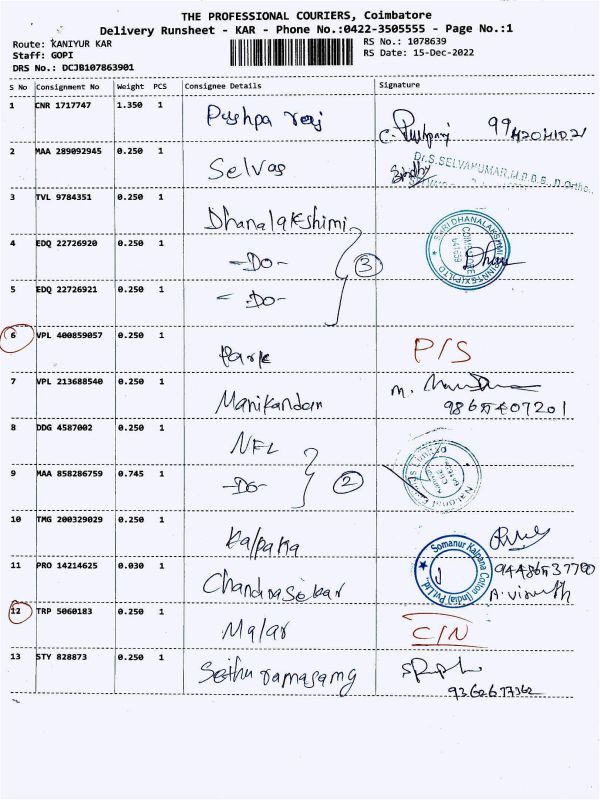 THE PROFESSIONAL COURIERS, Coimbatore
Delivery Runsheet - KAR - Phone No.:0422-3505555 - Page No.:1
Route: KANIYUR KAR RS No.: 1078639
Staff: GOPI RS Date: 15-Dec-2022
DRS No.: DCJB107863901
S No Consignment No Weight PCS Consignee Details Signature
1 CNR 1717747 1.350 1 Pushpa raj
2 MAA 289092945 0.250 1 Selvas Dr.S.SELVAKUMAR,M.B.B.S., D.Ortho.,
3 TVL 9784351 0.250 1 Dhanalakshimi
4 EDQ 22726920 0.250 1 -Do- 3
5 EDQ 22726921 0.250 1 -Do-
6 VPL 400859057 0.250 1 Park P/S
7 VPL 213688540 0.250 1 Manikandan M.
8 DDG 4587002 0.250 1 NFL
9 MAA 858286759 0.745 1 -Do- 2
10 TMG 200329029 0.250 1 Kalpana
11 PRO 14214625 0.030 1 Chandrasekar Somanur Kalpana Cotton (India) Pvt.Ltd.,
12 TRP 5060183 0.250 1 Malar C/N
13 STY 828873 0.250 1 Sethu ramasamy